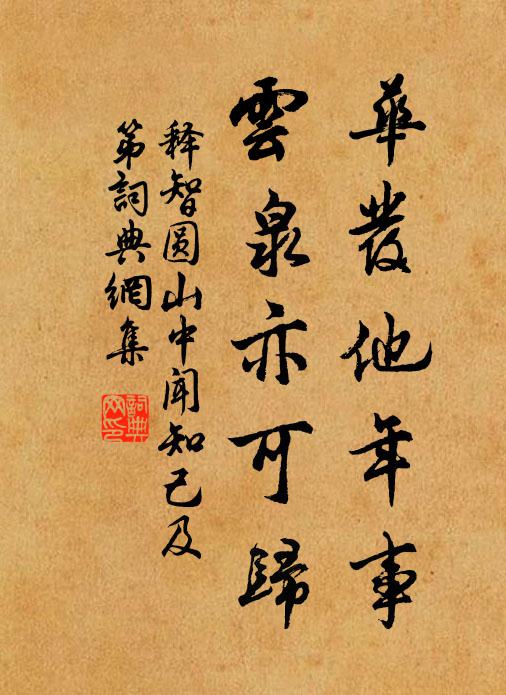 華發他年事
雲泉亦可歸
释智圆山中闻知己及
第詞典網集
詞典
网印